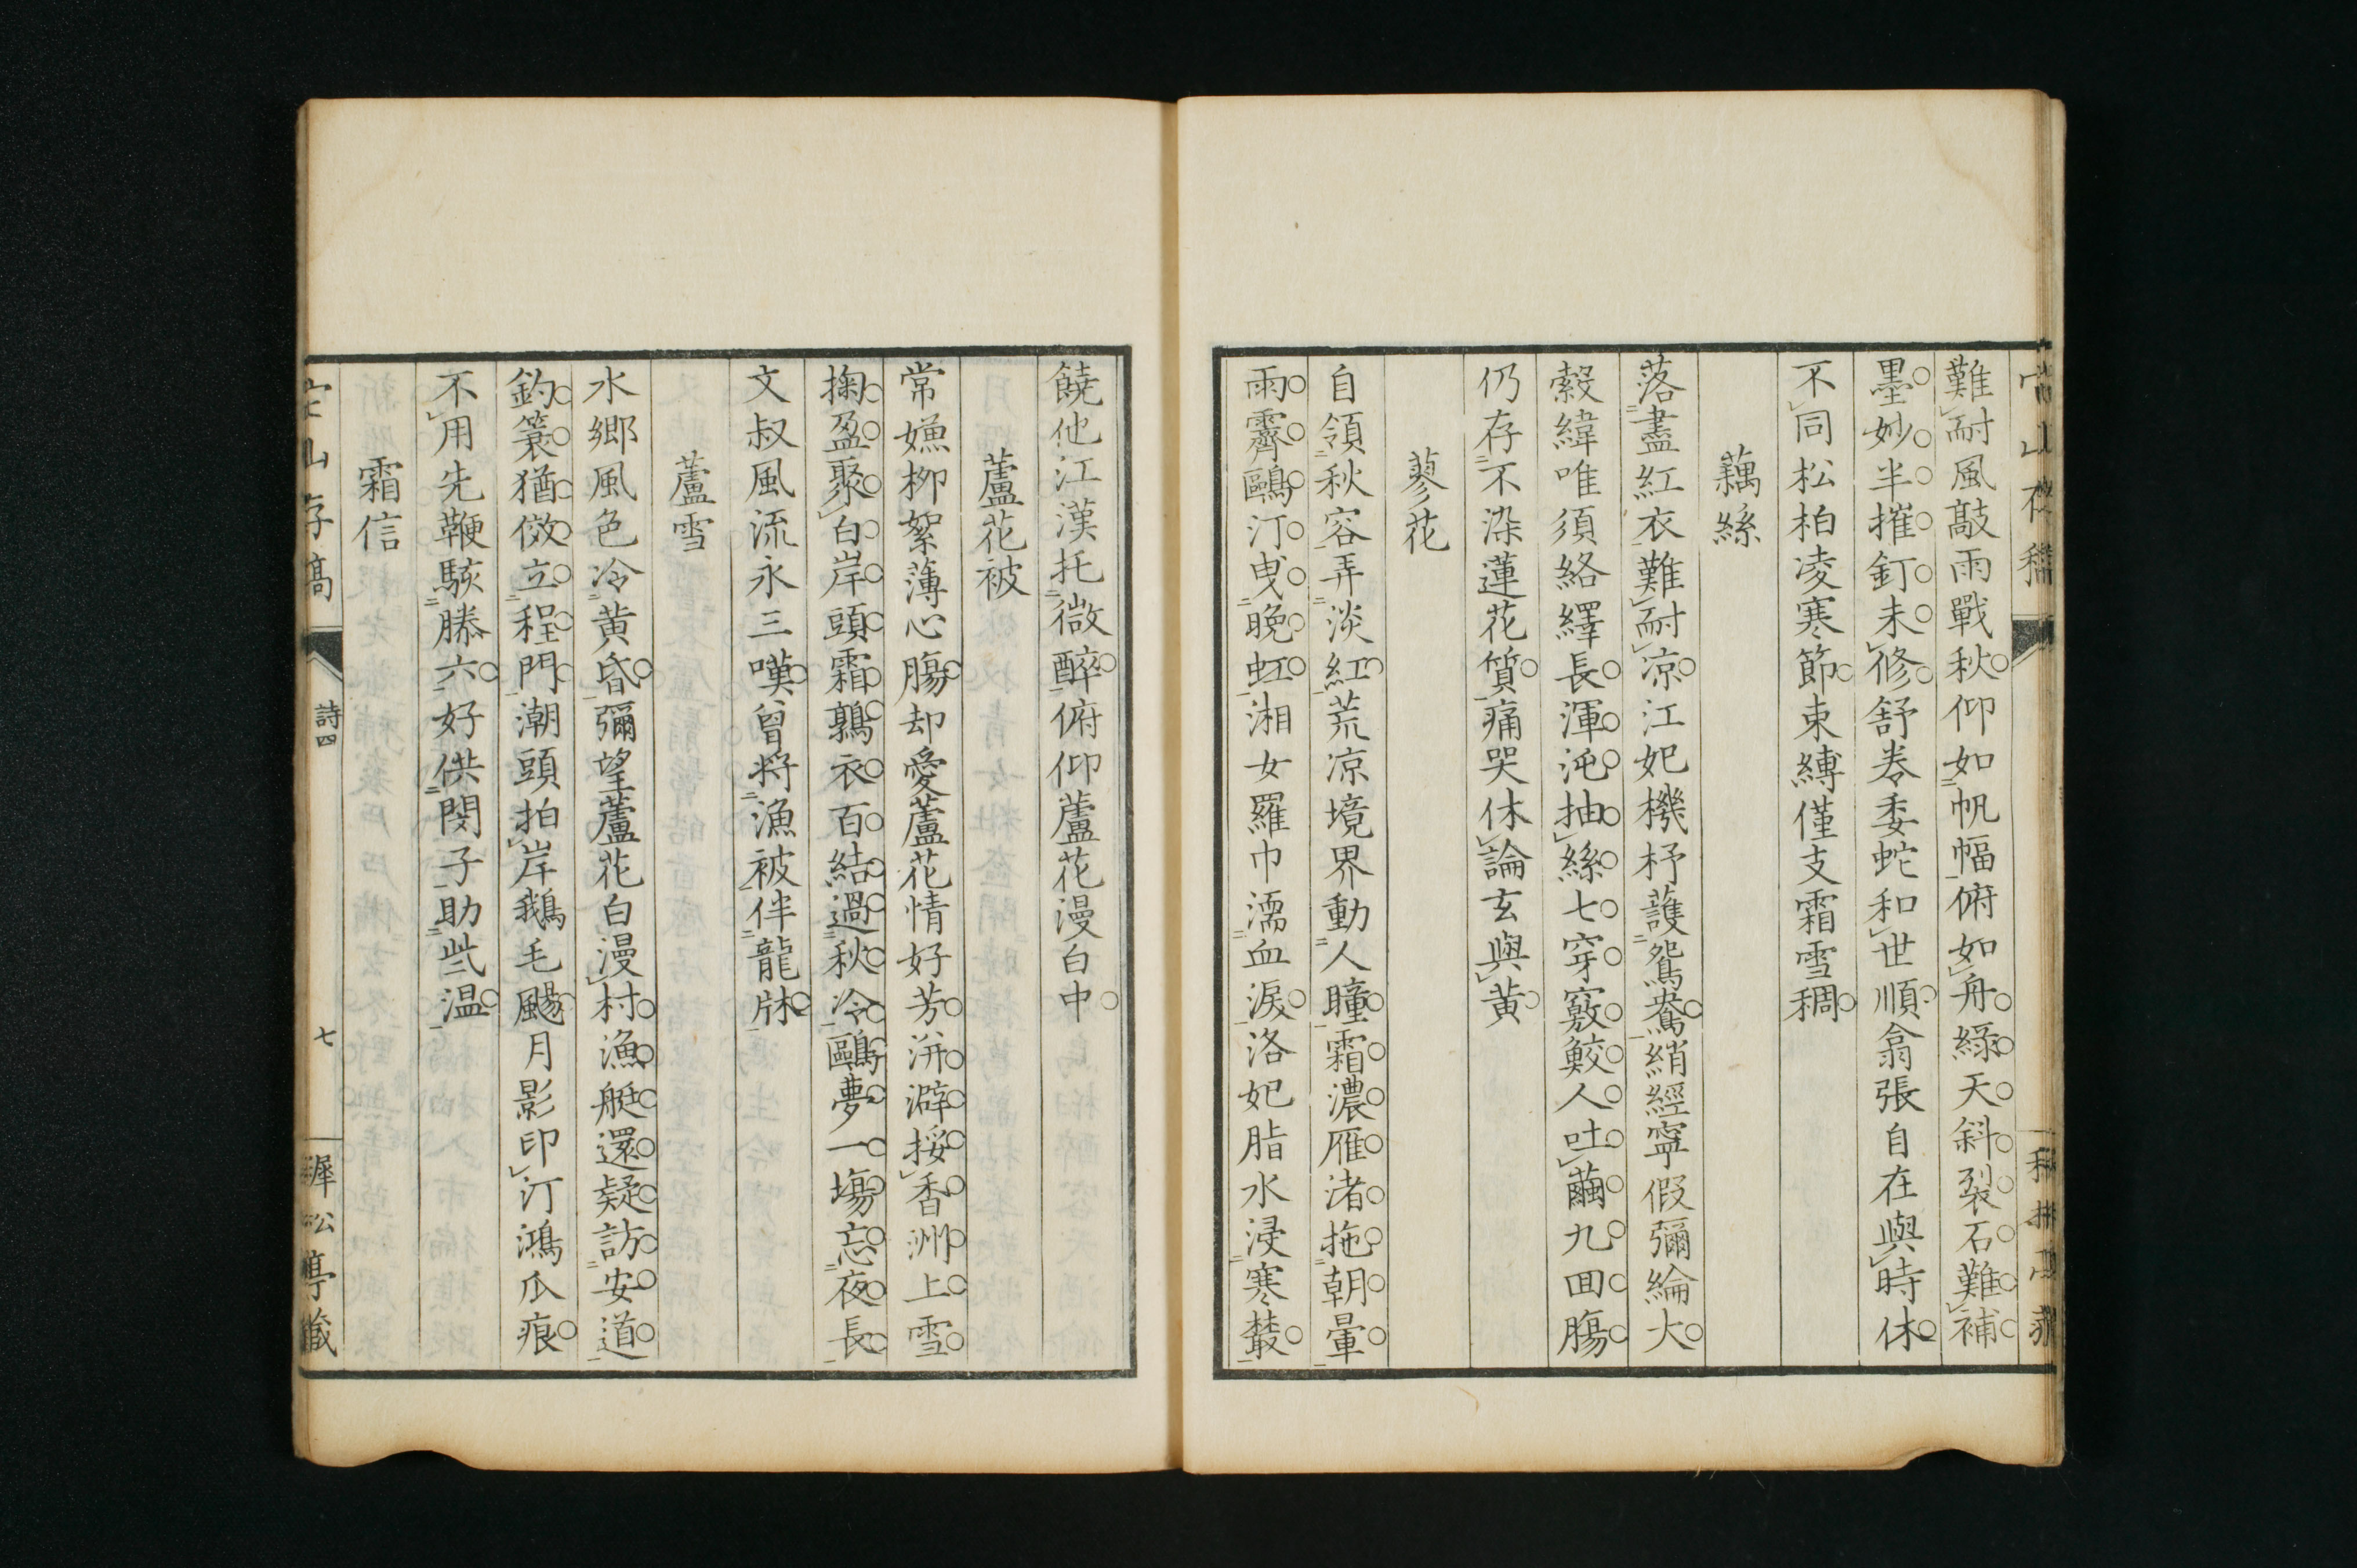 難耐風敲雨戰秋仰如帆幅俯如舟綠天斜裂石難補
墨妙半摧釘未修舒卷委蛇和世順翕張自在與時休
不同松柏凌寒節束縛僅支霜雪稠
藕絲
落盡紅衣難耐凉江妃機杼護鴛鴦綃經寧假彌綸大
縠緯唯須絡繹長渾沌抽絲七穿竅鮫人吐繭九回腸
仍存不染蓮花質痛哭休論玄與黄
蓼花
自領秋容弄淡紅荒凉境界動人瞳霜濃雁渚拖朝暈
雨霽鷗汀曳晚虹湘女羅巾濡血淚洛妃脂水浸寒藂
饒他江漢托微醉俯仰蘆花漫白中
蘆花被
常嫌柳絮薄心腸却愛蘆花情好芳洴澼挼香洲上雪
掬盈聚白岸頭霜鶉衣百結過秋冷鷗夢一場忘夜長
文叔風流永三嘆曾將漁被伴龍牀
蘆雪
水鄉風色冷黄昏彌望蘆花白漫村漁艇還疑訪安道
釣簑猶傚立程門潮頭拍岸鵝毛颺月影印汀鴻爪痕
不用先鞭駭滕六好供閔子助些温
霜信
宕山存稿
詩四
七
犀松亭藏